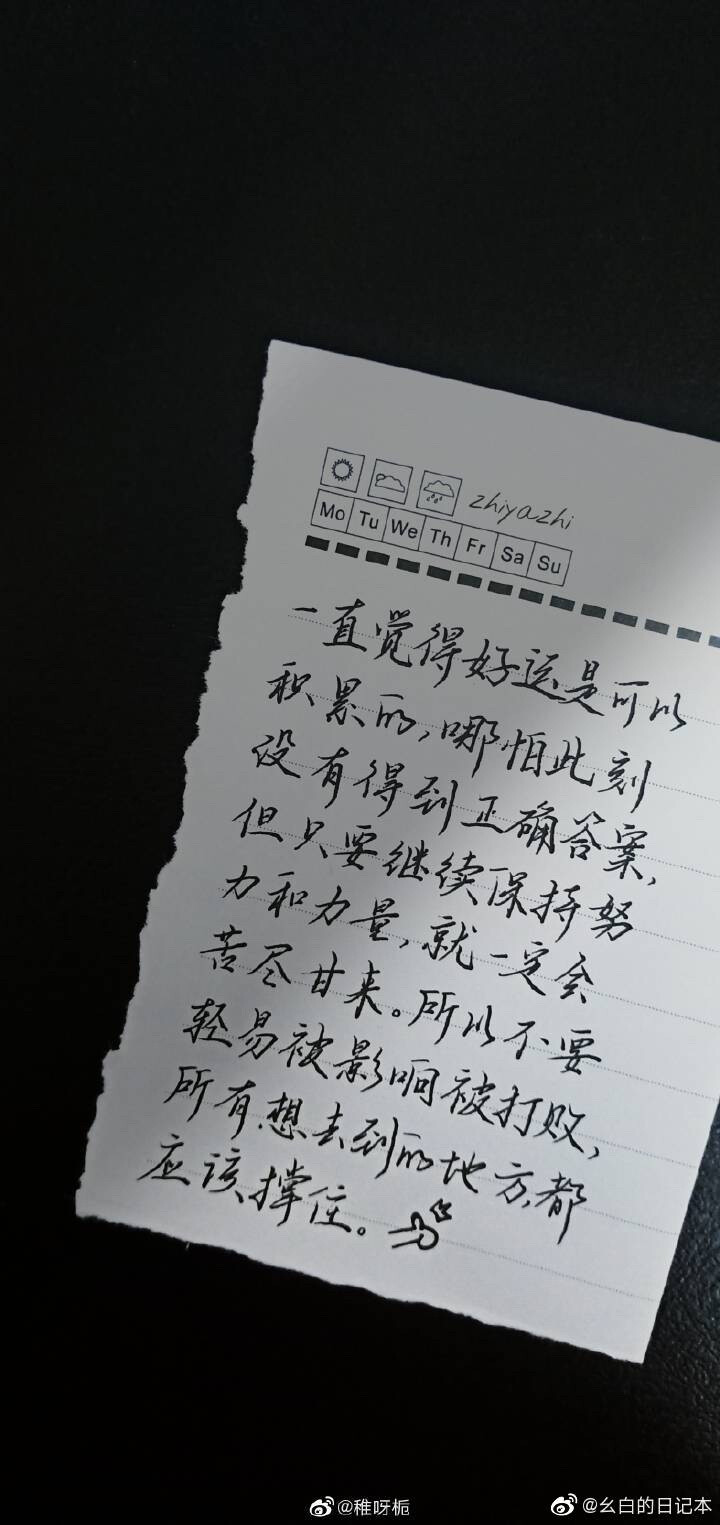 zhiyazhi
Mo Tu We Th Fr Sa Su
一直觉得好运是可以
积累的,哪怕此刻
没有得到正确答案,
但只要继续保持努
力和力量,就一定会
苦尽甘来。所以不要
轻易被影响被打败,
所有想去到的地方,都
应该撑住。
@稚呀栀
@幺白的日记本